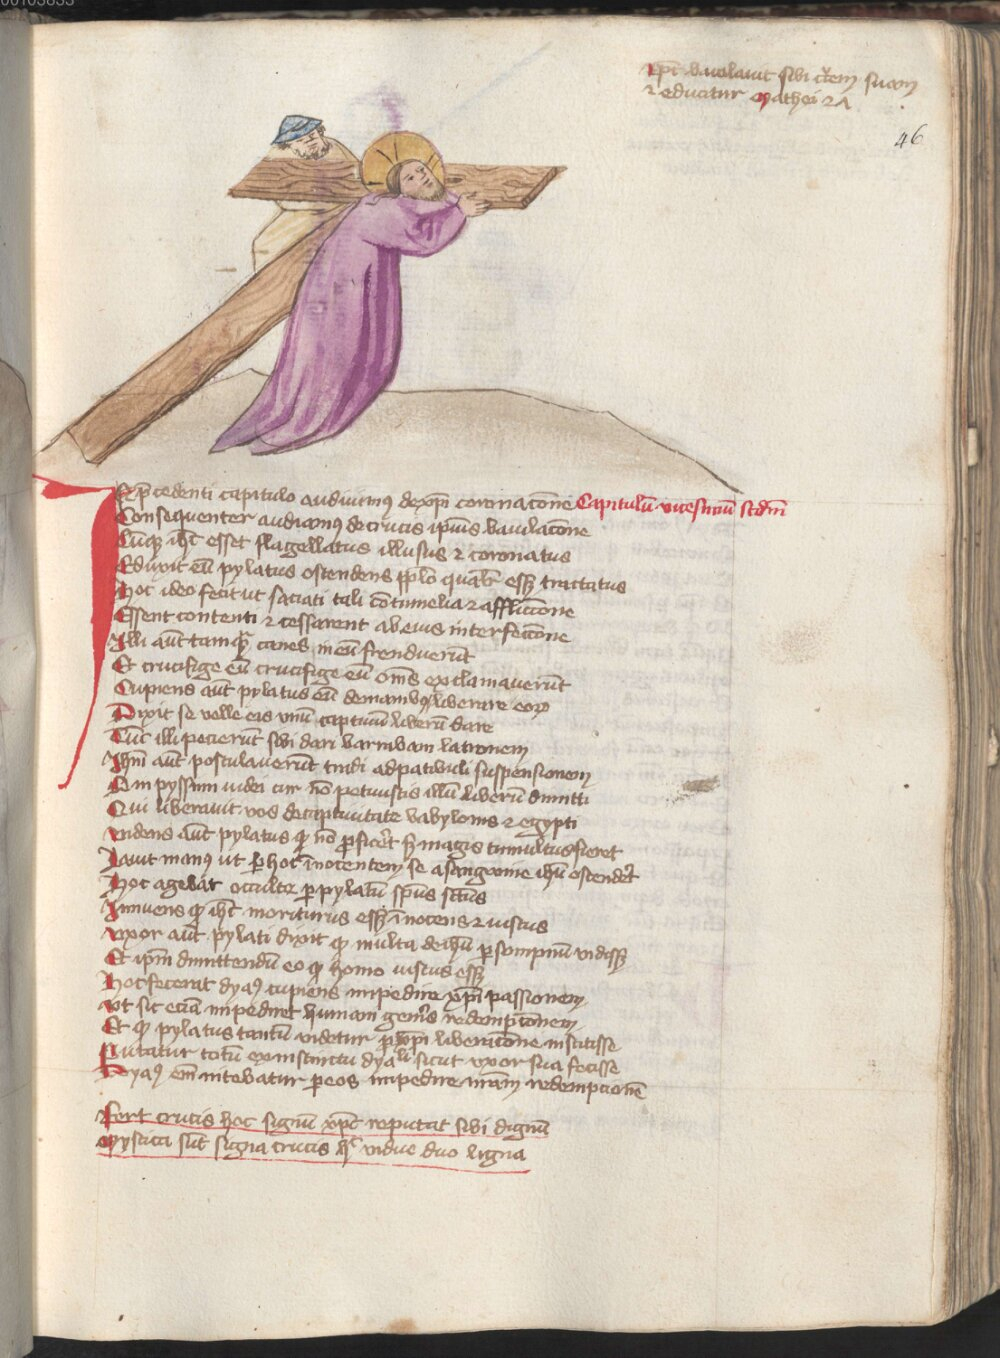 00103855
Xpc baiulavit sibi crucem suam
⁊ educitur Mathei 2A
46
In p̄cedenti capitulo audivimus de xpi coronacone Capitulū vicesimū scdm
Consequenter audiamus de crucis ipius baiulacone
Cūque ihc esset flagellatus illusus ⁊ coronatus
Eduxit eū pylatus ostendens pplo qualr esset tractatus
Hoc ideo fecit ut saciati tali cōtumelia ⁊ afflicone
Essent contenti ⁊ cessarent ab eius interfeccone
Illi aūt tamquā canes in eū frenduerūt
Et crucifige eū crucifige eū oms exclamaverūt
Cupiens aūt pylatus eū de manibus liberare eorum
Dixit se velle eis unū captivū liberū dare
Tūc illi pecierūt sibi dari barraban latronem
Ihm aūt postulaverūt tradi ad patibuli suspensionem
O impyssimi iudei cur nō petivistis illū liberū dimitti
Qui liberavit vos de captivitate babylonis ⁊ egypti
Videns aūt pylatus quod nō p̄ficeret sed magis tumultus fieret
Lavit manus ut per hoc īnocentem se a sanguine ihu ostenderet
Hoc agebat occulte per pylatū spūs sctūs
Innuens quod ihc moriturus esset īnocens ⁊ iustus
Uxor aūt pylati dixit quod multa de ihu per sompnū vidisset
Et ipm dimittendū eo quod homo iustus esset
Hoc fecerat dyabolus cupiens impedire xpi passionem
Ut sic eciā impediret humani generis redempconem
Et quod pylatus tantū videtur pro xpi liberacone institisse
Putatur totū ex instinctu dyaboli sicut uxor sua fecisse
Dyabolus em nitebatur per eos impedire nram redempcionē
Fert crucis hoc signū xpc reputat sibi dignū
Mystica sūt signa crucis hec vidue duo ligna